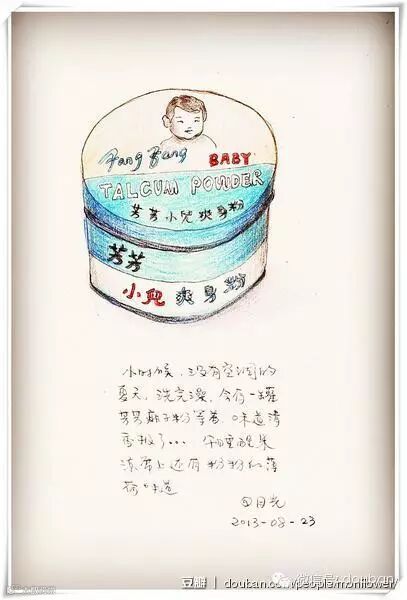 Fang Fang BABY
TALCUM POWDER
芳芳小兒爽身粉
芳芳
小兒爽身粉
小时候,没有空调的
夏天,洗完澡,会有一罐
芳芳痱子粉等着,味道清
香极了...午睡醒来
凉席上还有粉粉的薄
荷味道
2013-08-23
豆瓣 douban.com/people/monflower/
微信号: douban